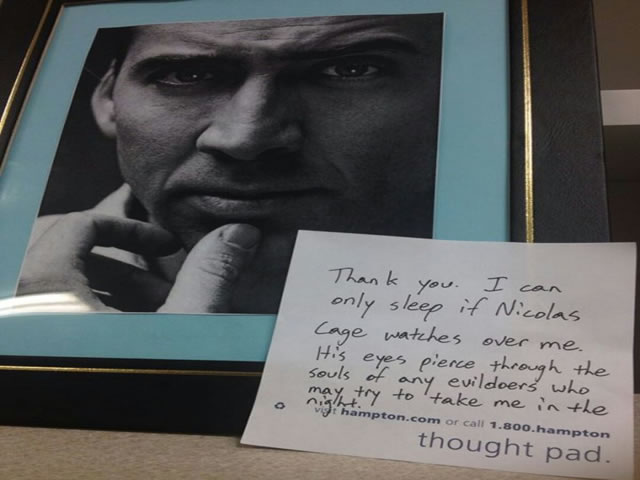 Thank you. I can
only sleep if Nicolas
Cage watches over me.
His eyes pierce through the
souls of any evildoers who
may try to take me in the
night.
visit hampton.com or call 1.800.hampton
thought pad.